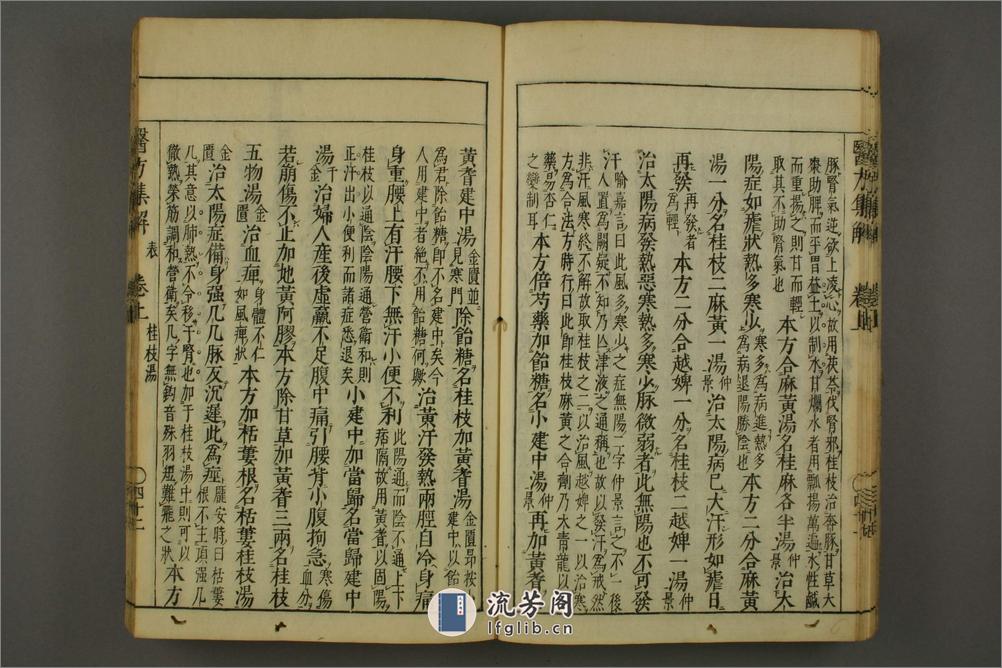 醫方集解
豚腎氣逆欲上凌心故用茯苓伐腎邪桂枝治奔豚甘草大
棗助脾而平胃益土以制水甘爛水者用瓢揚萬遍水性鹹
而重揚之則甘而輕
取其不助腎氣也
本方合麻黃湯名桂麻各半湯仲景治太
陽症如瘧狀熱多寒少
寒多為病進熱多
為病退陽勝陰也
本方二分合麻黃
湯一分名桂枝二麻黃一湯仲景治太陽病已大汗形如瘧日
再發
再發者
為輕
本方二分合越婢一分名桂枝二越婢一湯仲景
治太陽病發熱惡寒熱多寒少脉微弱者此無陽也不可發
汗
喻嘉言曰此風多寒少之症無陽二字仲景言之不一後
人置為闕疑不知乃亾津液之通稱也故以發汗為戒然
非汗風寒終不解故取桂枝之二以治風越婢之一以治寒
方為合法方時行曰此即桂枝麻黃之合劑乃大青龍以芍
藥易杏仁
之變制耳
本方倍芍藥加飴糖名小建中湯仲景再加黃耆名
黃耆建中湯
金匱並
見寒門
除飴糖名桂枝加黃耆湯
金匱昂按
建中以飴
為君除飴糖即不名建中矣今
人用建中者絶不用飴糖何歟
治黃汗發熱兩脛自冷身痛
身重腰上有汗腰下無汗小便不利
此陽通而陰不通上下
痞隔故用黃耆以固陽
桂枝以通陰陰陽通營衛和則
正汗出小便利而諸症悉退矣
小建中加當歸名當歸建中
湯千金治婦人產後虛羸不足腹中痛引腰背小腹拘急
寒傷
血分
若崩傷不止加地黃阿膠本方除甘草加黃耆三兩名桂枝
五物湯金匱治血痺
身體不仁
如風痺狀
本方加栝蔞根名栝蔞桂枝湯
金匱治太陽症備身强几几脉反沉遲此為痓
龐安時曰栝蔞
根不主項强几
几其意以肺熱不令移于腎也加于桂枝湯中則可以
徹熱榮筋調和營衛矣几字無鈎音殊羽短難飛之狀
本方
醫方集解 表 卷上 桂枝湯 四十二
流芳阁
lfglib.cn